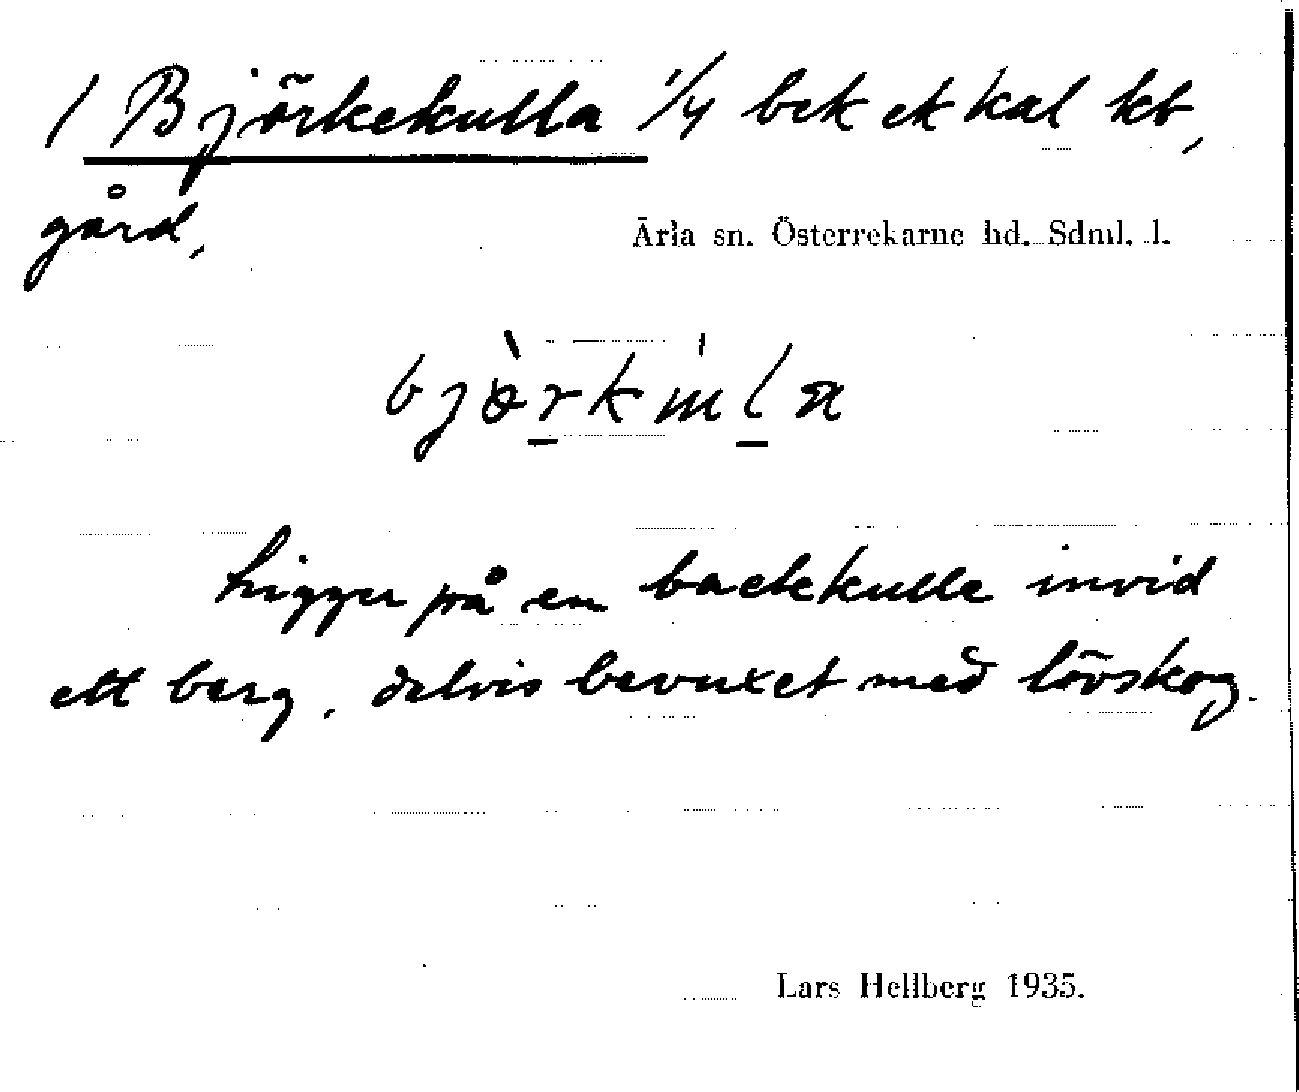 1 Björkekulla 1/4 bek ek kal kb,
gård,
Ärla sn. Österrekarne hd. Sdml. l.
Ligger på en backkulle invid
ett berg, delvis bevuxet med lövskog.
Lars Hellberg 1935.